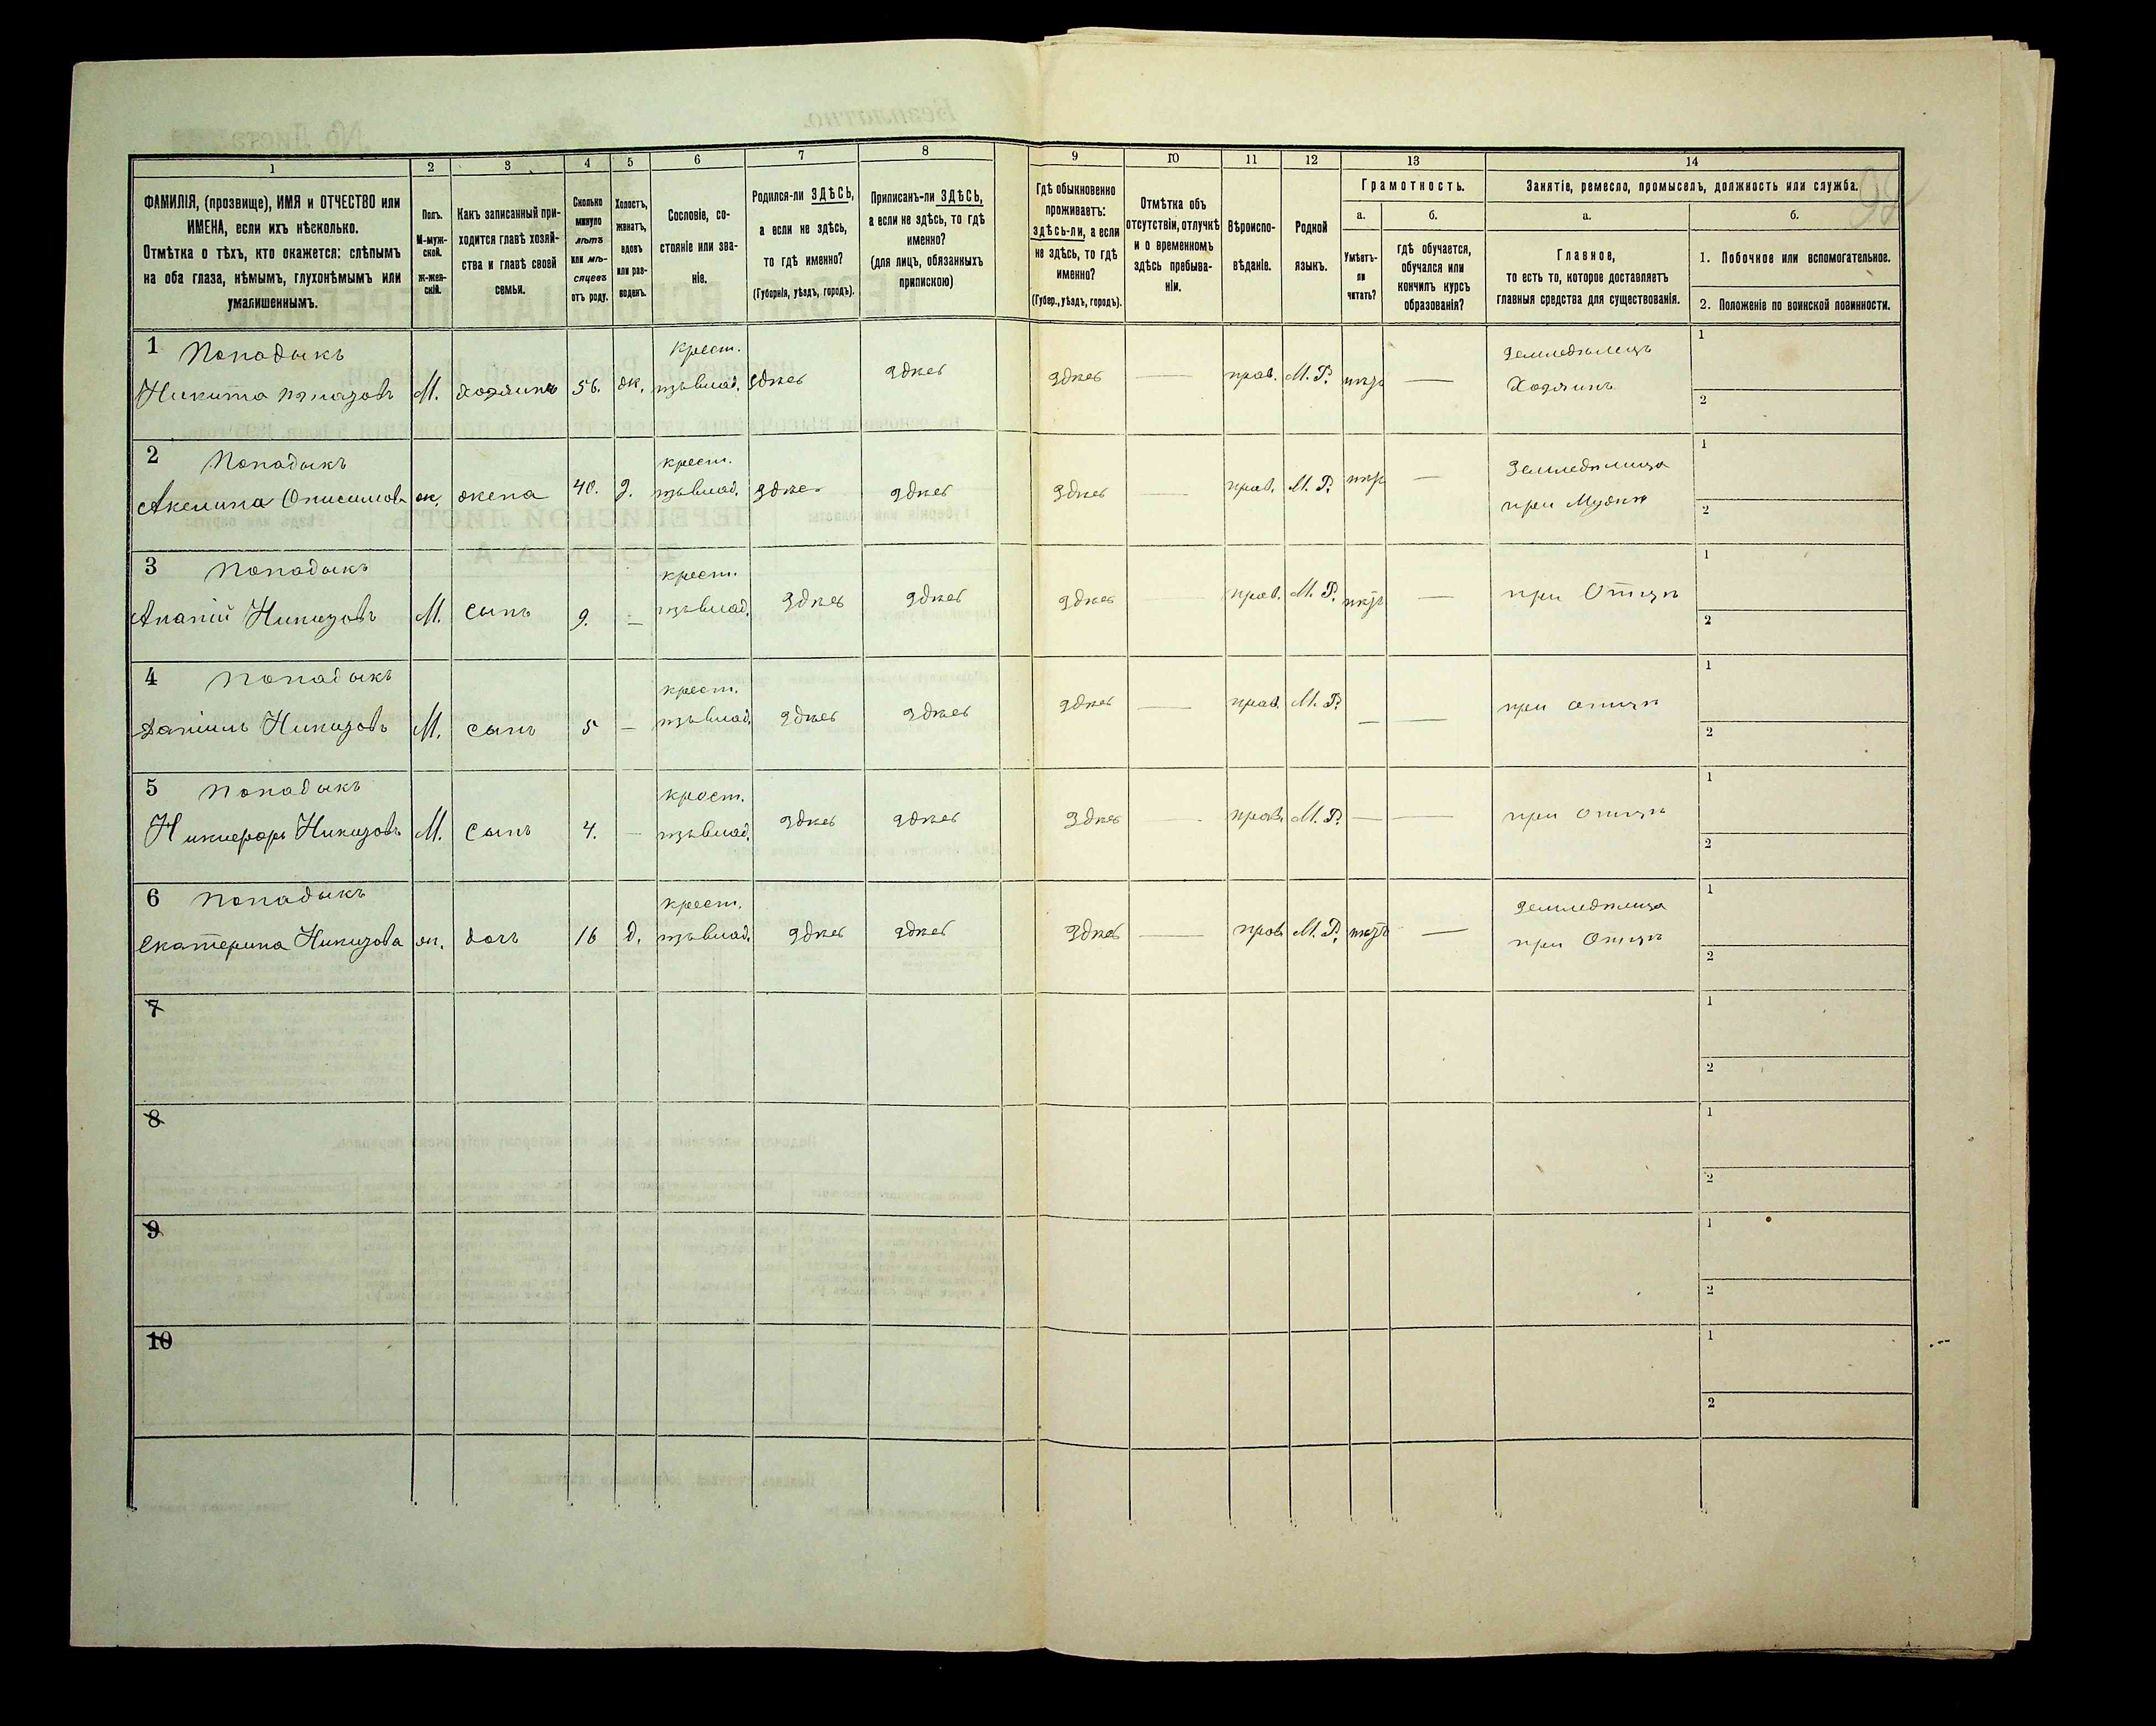 1 2 3 4 5 6 7 8 9 10 11 12 13 14
ФАМИЛІЯ, (прозвище), ИМЯ и ОТЧЕСТВО или
ИМЕНА, если ихъ нѣсколько.
Отмѣтка о тѣхъ, кто окажется: слѣпымъ
на оба глаза, нѣмымъ, глухонѣмымъ или
умалишеннымъ.
Полъ.
М-муж-
ской.
ж-жен-
скій.
Какъ записанный при-
ходится главѣ хозяй-
ства и главѣ своей
семьи.
Сколько
минуло
лѣтъ
или мѣ-
сяцевъ
отъ роду.
Холостъ,
женатъ,
вдовъ
или раз-
веденъ.
Сословіе, со-
стояніе или зва-
ніе.
Родился-ли ЗДѢСЬ,
а если не здѣсь,
то гдѣ именно?
(Губернія, уѣздъ, городъ).
Приписанъ-ли ЗДѢСЬ,
а если не здѣсь, то гдѣ
именно?
(для лицъ, обязанныхъ
припискою)
Гдѣ обыкновенно
проживаетъ:
здѣсь-ли, а если
не здѣсь, то гдѣ
именно?
(Губер., уѣздъ, городъ).
Отмѣтка объ
отсутствіи, отлучкѣ
и о временномъ
здѣсь пребыва-
ніи.
Вѣроиспо-
вѣданіе.
Родной
языкъ.
Грамотность.
а. б.
Умѣетъ-
ли
читать?
гдѣ обучается,
обучался или
кончилъ курсъ
образованія?
Занятіе, ремесло, промыселъ, должность или служба.
а. б.
Главное,
то есть то, которое доставляетъ
главныя средства для существованія.
1. Побочное или вспомогательное.
2. Положеніе по воинской повинности.
1 Попадыкъ крест. Земледѣлецъ 1
Никита М. хозяинъ 56. ж. здѣсь здѣсь здѣсь — прав. М. Р. нѣтъ — Хозяинъ
2
2 Попадыкъ крест. Земледѣлица 1
Акелина Онисимова ж. жена 40. з. здѣсь здѣсь здѣсь — прав. М. Р. нѣтъ — при Мужѣ
2
3 Попадыкъ крест. 1
Ананій Никитовъ М. сынъ 9. — здѣсь здѣсь здѣсь — прав. М. Р. нѣтъ — при Отцѣ
2
4 Попадыкъ крест. 1
Даніилъ Никитовъ М. сынъ 5 — здѣсь здѣсь здѣсь — прав. М. Р. — — при отцѣ
2
5 Попадыкъ крест. 1
Никифоръ Никитовъ М. сынъ 4. — здѣсь здѣсь здѣсь — прав. М. Р. — — при отцѣ
2
6 Попадыкъ крест. Земледѣлица 1
Екатерина Никитова ж. дочь 16 д. здѣсь здѣсь здѣсь — прав. М. Р. нѣтъ — при Отцѣ
2
7 1
2
8 1
2
9 1
2
10 1
2